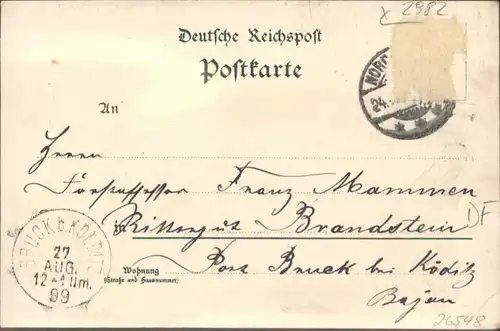 x 2982
Deutsche Reichspost
Postkarte
NORD
24.
An
Herrn
Forstassessor Franz Mammen
in Rittergut Brandstein
DF
BRUCK b. KÖDITZ
27
AUG.
12-1 Nm.
99
Wohnung
(Straße und Hausnummer)
Post Bruck bei Köditz
Bayern
26548